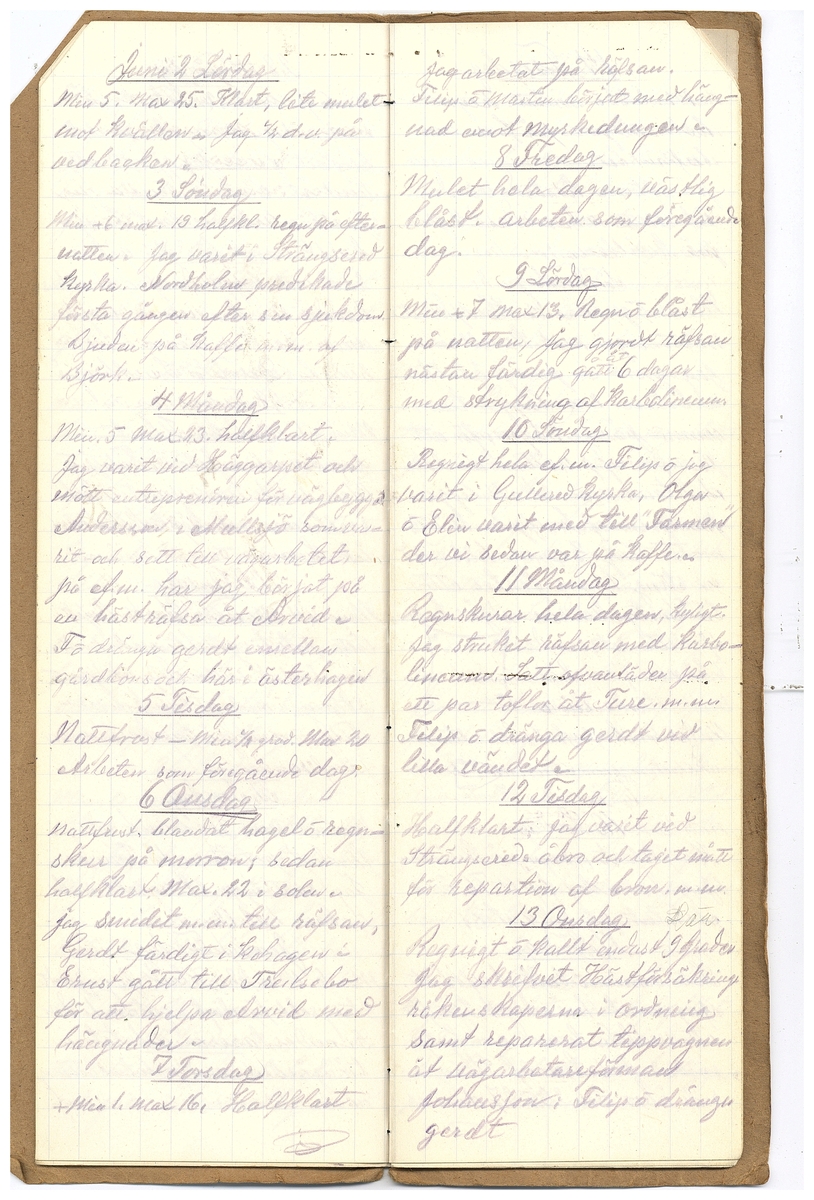 Juni 2 Lördag
Min 5. Max 25. Klart, lite mulet
mot kvällen. Jag ½ d.v. på
vedbacken.
3 Söndag
Min +6 max. 19 halfkl. regn på efter-
natten. Jag varit i Strängsered
kyrka. Nordholm predikade
första gången efter sin sjukdom.
Bjuden på kaffe m.m. af
Björk.
4 Måndag
Min. 5 Max 23. halfklart.
Jag varit vid och
mött entreprenören för vägbygge
Andersson, i Mullsjö som va-
rit och sett till vägarbetet.
på ef.m. har jag börjat på
en hästräfsa åt Arvid.
F ö drängen gerdt emellan
och här i österhagen
5 Tisdag
Nattfrost — Min ½ grad. Max 20
Arbeten som föregående dag.
6 Onsdag
Nattfrost. blandat hagel ö regn-
skur på morron; sedan
halfklart. Max. 22 i solen.
jag smidit m.m. till räfsan,
Gerdt färdigt i kohagen
Ernst gått till Trulsebo
för att hjelpa Arvid med
hängnader.
7 Torsdag
+Min 1. Max 16. Halfklart
Jag arbetat på räfsan.
Filip ö Martin börjat med häng-
nad emot myrkedungen.
8 Fredag
Mulet hela dagen, västlig
blåst. arbeten som föregående
dag.
9 Lördag
Min +7 Max 13. Regn ö blåst
på natten, Jag gjordt räfsan
nästan färdig gått åt 6 dagar
med strykning af karbolineum
10 Söndag
Regnigt hela ef.m. Filip ö jag
varit i Gullered kyrka. Olga
ö Elin varit med till "Tarmen"
der vi sedan var på kaffe.
11 Måndag
Regnskurar hela dagen, kyligt.
Jag struket räfsan med karbo-
lineum. Satt ofvanläder på
ett par tofflor åt Ture. m.m
Filip ö drängen gerdt vid
lilla vändet.
12 Tisdag
Halfklart; jag varit vid
Strängsereds åbro och taget mått
för repartion af bron. m.m.
13 Onsdag
Regnigt ö kallt endast 9 grader
Jag skrifvet Hästförsäkrings
räkenskaperna i ordning
samt reparerat tippvagnen
åt vägarbetareförman
Johansson; Filip ö drängen
gerdt